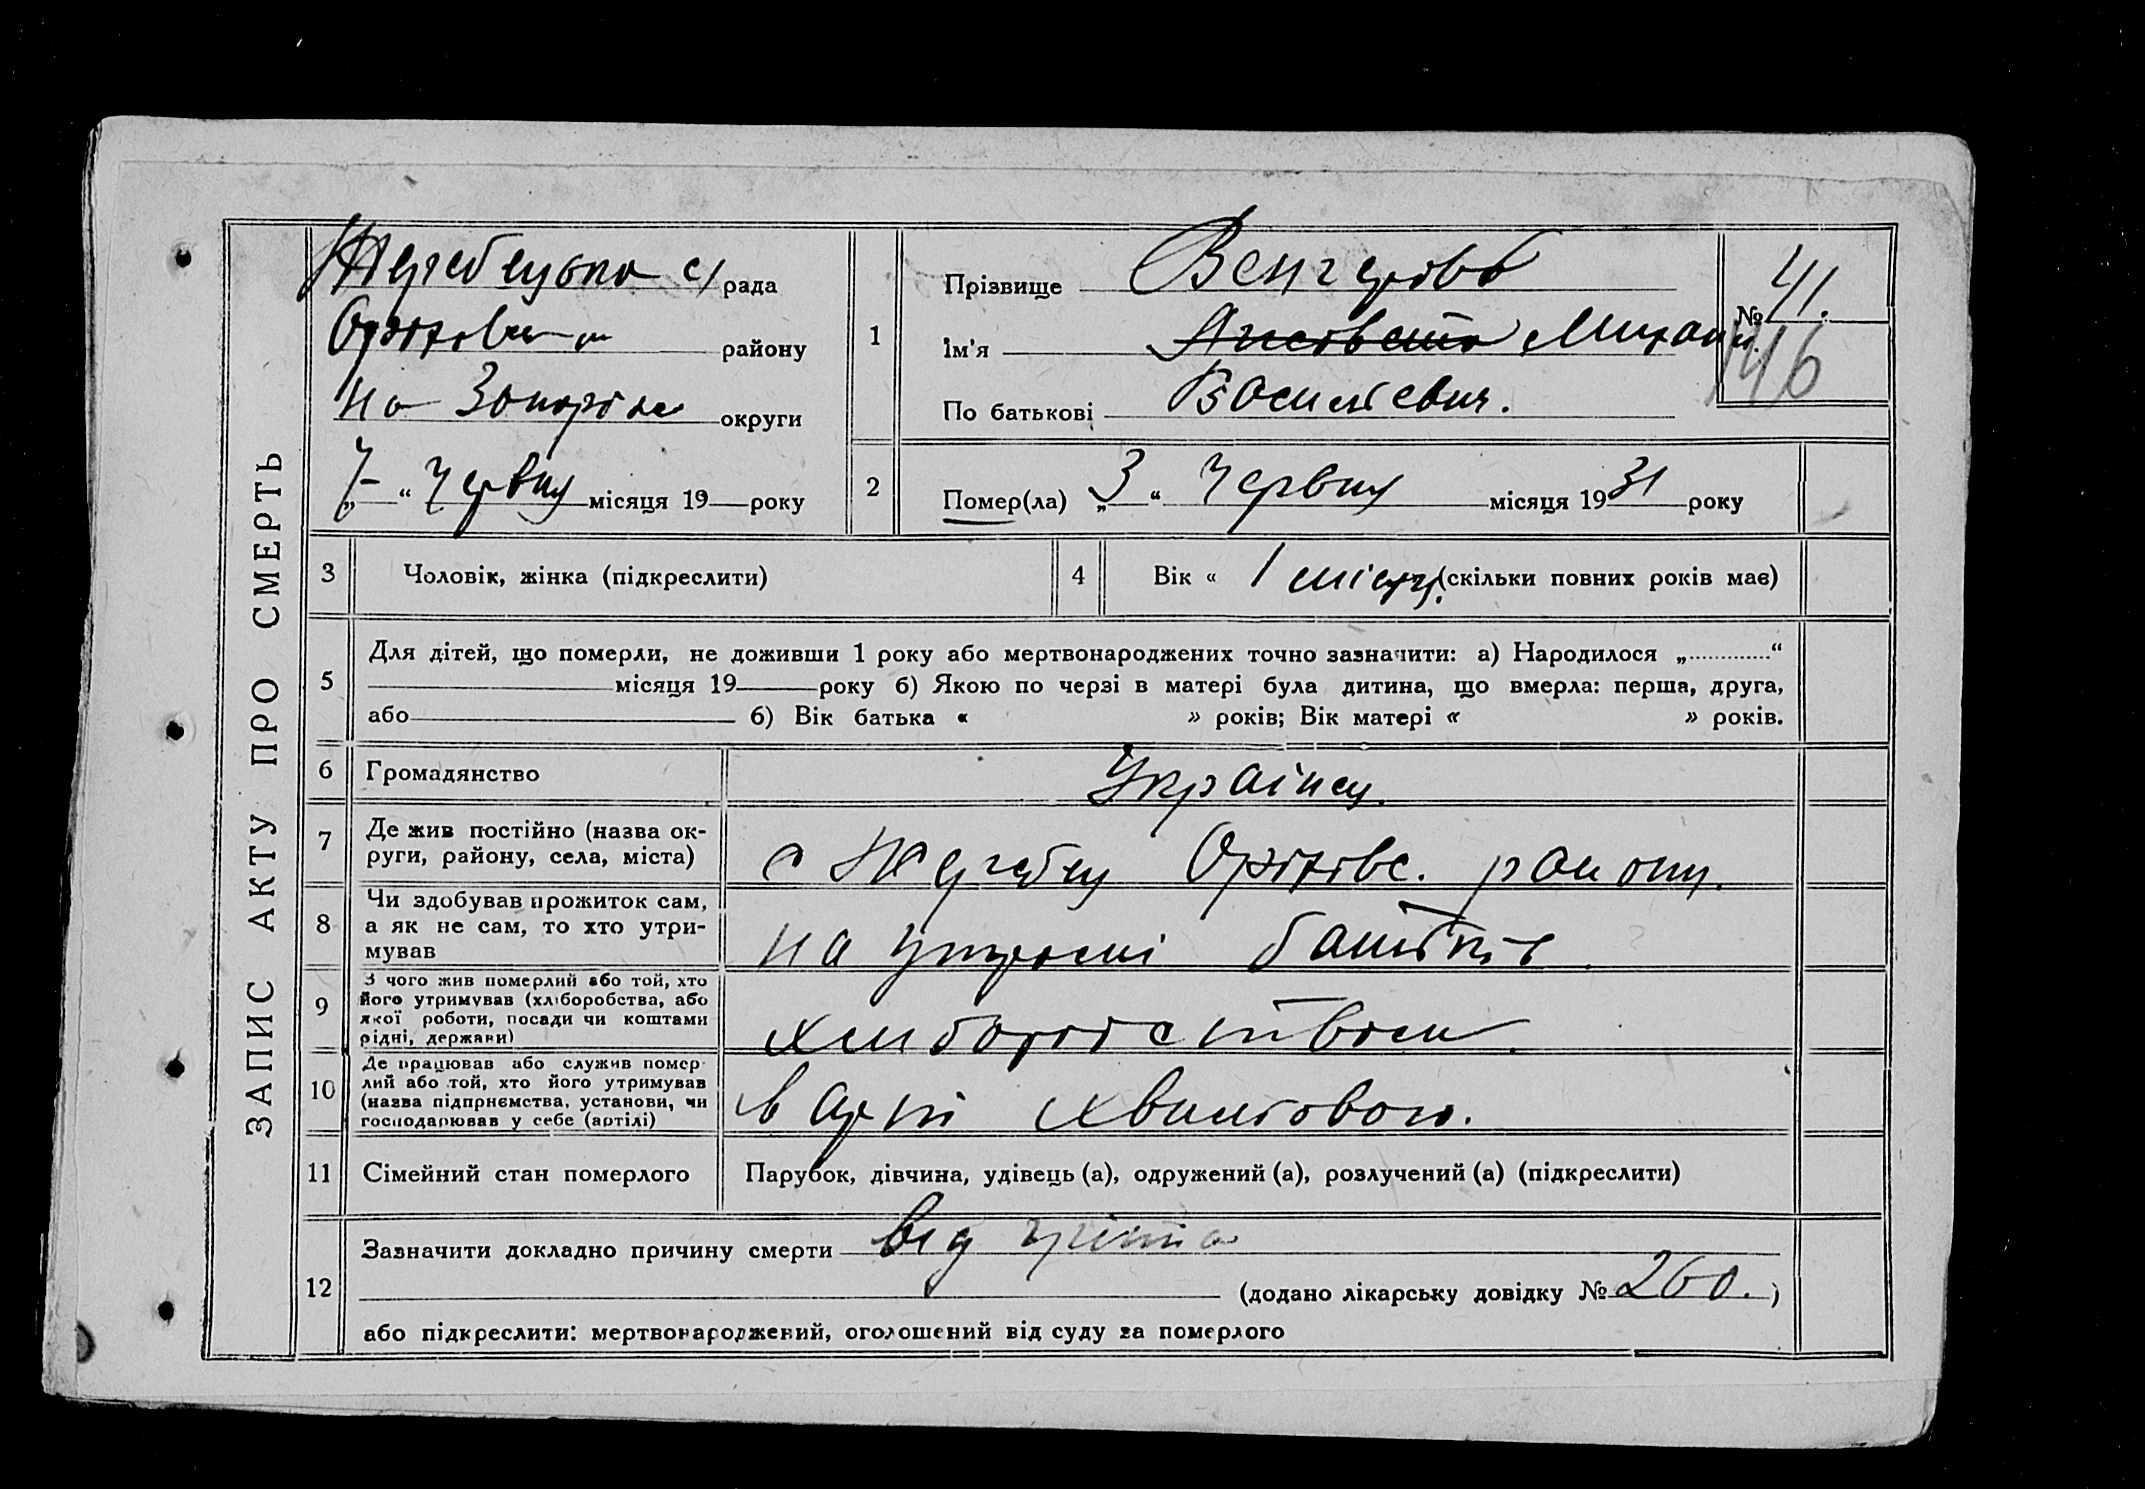 ЗАПИС АКТУ ПРО СМЕРТЬ
Жеребецька с/рада
Оріхівськ району
на Запоріжж округи
„7“ Червня місяця 19 року
1
Прізвище Венгерова
Ім'я Лисавета Михайл.
По батькові Васильевич.
№ 41.
146
2
Помер(ла) „3“ Червня місяця 1931 року
3 Чоловік, жінка (підкреслити)
4 Вік « 1 місяц. (скільки повних років має)
5
Для дітей, що померли, не доживши 1 року або мертвонароджених точно зазначити: а) Народилося „.............“
місяця 19 року б) Якою по черзі в матері була дитина, що вмерла: перша, друга,
або б) Вік батька « » років; Вік матері « » років.
6 Громадянство Українец.
7 Де жив постійно (назва округи, району, села, міста)
с Жеребец Оріхівс. району.
8 Чи здобував прожиток сам, а як не сам, то хто утримував
на утрамні батьків.
9 З чого жив померлий або той, хто його утримував (хліборобства, або якої роботи, посади чи коштами рідні, держави)
хлиборобством.
10 Де працював або служив померлий або той, хто його утримував (назва підприємства, установи, чи господарював у себе (артілі)
в арті
11 Сімейний стан померлого Парубок, дівчина, удівець (а), одружений (а), розлучений (а) (підкреслити)
12
Зазначити докладно причину смерти від
(додано лікарську довідку № 260. )
або підкреслити: мертвонароджений, оголошений від суду за померлого